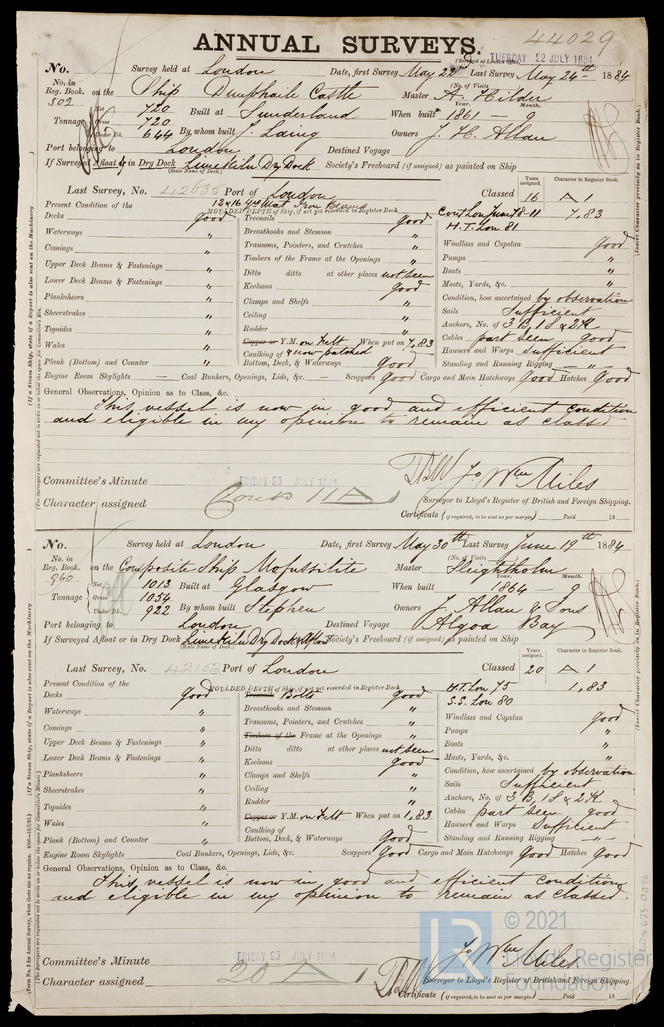 44029
ANNUAL SURVEYS.
(Received at London Office)
TUESDAY 22 JULY 1884
No. Survey held at London Date, first Survey May 22nd Last Survey May 24th 1884
No. in Reg. Book. (No. of Visits)
502 on the Ship Dunphaile Castle Master A. Hilder
Net 720 Year. Month.
Tonnage Gross 720 Built at Sunderland When built 1861 - 9
Under Dk. 644 By whom built J. Laing Owners J. H. Allan
Port belonging to London Destined Voyage
If Surveyed Afloat or in Dry Dock Limekiln Dry Dock Society's Freeboard (if assigned) as painted on Ship
(State Name of Dock.)
Years assigned. Character in Register Book.
Last Survey, No. 42635 Port of London Classed 16 A 1
Present Condition of the MOULDED DEPTH of Ship, if not yet recorded in Register Book Cont Lon June 78-11 7,83
Decks good Treenails good H.T. Lon 81
Waterways " Breasthooks and Stemson " Windlass and Capstan good
Comings " Transoms, Pointers, and Crutches " Pumps "
Upper Deck Beams & Fastenings " Timbers of the Frame at the Openings " Boats "
Lower Deck Beams & Fastenings " Ditto ditto at other places not seen Masts, Yards, &c. "
Planksheers " Keelsons good Condition, how ascertained by observation
Sheerstrakes " Clamps and Shelfs " Sails Sufficient
Topsides " Ceiling " Anchors, No. of 3 B, 1 S & 2 K
Wales " Rudder " Cables part seen good
Copper or Y.M. on Felt When put on 7,83 Hawsers and Warps Sufficient
Plank (Bottom) and Counter " Caulking of Bottom, Deck, & Waterways & now patched Good Standing and Running Rigging "
Engine Room Skylights - Coal Bunkers, Openings, Lids, &c. - Scuppers Good Cargo and Main Hatchways Good Hatches Good
General Observations, Opinion as to Class, &c.
This vessel is now in good and efficient condition
and eligible in my opinion to remain as classed
Committee's Minute FRIDAY 25 JULY 1884
Jo Wm Miles
Character assigned Cont 11 A 1 Surveyor to Lloyd's Register of British and Foreign Shipping.
Certificate (if required, to be sent as per margin) Paid 18
No. Survey held at London Date, first Survey May 30th Last Survey June 19th 1884
No. in Reg. Book. (No. of Visits)
960 on the Composite Ship Mofussilite Master Heightholm
Net 1013 Year. Month.
Tonnage Gross 1054 Built at Glasgow When built 1864 - 9
Under Dk. 922 By whom built Stephen Owners J. Allan & Sons
Port belonging to London Destined Voyage Algoa Bay
If Surveyed Afloat or in Dry Dock Limekiln Dry Dock & Afloat Society's Freeboard (if assigned) as painted on Ship
(State Name of Dock.)
Years assigned. Character in Register Book.
Last Survey, No. 42163 Port of London Classed 20 A 1
Present Condition of the MOULDED DEPTH of Ship, if not yet recorded in Register Book H.T. Lon 75 1,83
Decks good Treenails Bolts good S.S. Lon 80
Waterways " Breasthooks and Stemson " Windlass and Capstan good
Comings " Transoms, Pointers, and Crutches " Pumps "
Upper Deck Beams & Fastenings " Timbers of the Frame at the Openings " Boats "
Lower Deck Beams & Fastenings " Ditto ditto at other places not seen Masts, Yards, &c. "
Planksheers " Keelsons good Condition, how ascertained by observation
Sheerstrakes " Clamps and Shelfs " Sails Sufficient
Topsides " Ceiling " Anchors, No. of 3 B, 1 S & 2 K
Wales " Rudder " Cables part seen good
Copper or Y.M. on Felt When put on 1,83 Hawsers and Warps Sufficient
Plank (Bottom) and Counter " Caulking of Bottom, Deck, & Waterways Good Standing and Running Rigging "
Engine Room Skylights Coal Bunkers, Openings, Lids, &c. Scuppers Good Cargo and Main Hatchways Good Hatches Good
General Observations, Opinion as to Class, &c.
This vessel is now in good and efficient condition
and eligible in my opinion to remain as classed.
© 2021
Lloyd's Register
Foundation
Committee's Minute FRIDAY 25 JULY 1884
Jo Wm Miles
Character assigned 20 A 1 Surveyor to Lloyd's Register of British and Foreign Shipping.
Certificate (if required, to be sent as per margin) Paid 18